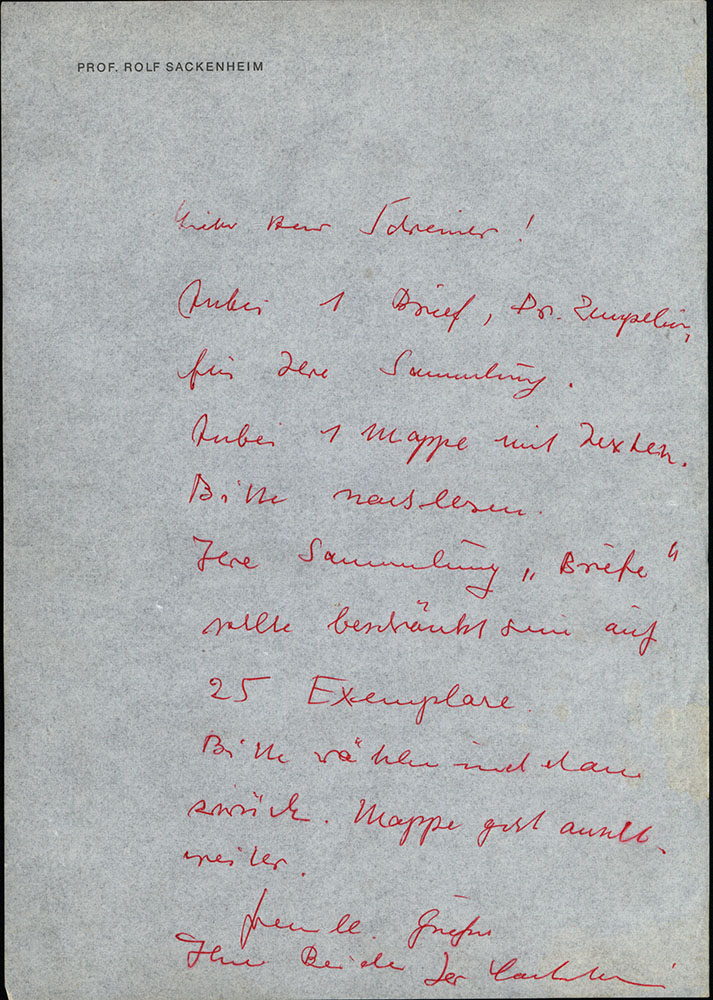 PROF. ROLF SACKENHEIM
Lieber Herr Schreiner!
Anbei 1 Brief, Dr. Zeppelin,
für Ihre Sammlung.
Anbei 1 Mappe mit Texten.
Bitte nachlesen.
Ihre Sammlung „Briefe“
sollte beschränkt sein auf
25 Exemplare.
Bitte wählen und dann
zurück. Mappe geht
weiter.
freundl. Grüße
Ihnen Beiden Ihr